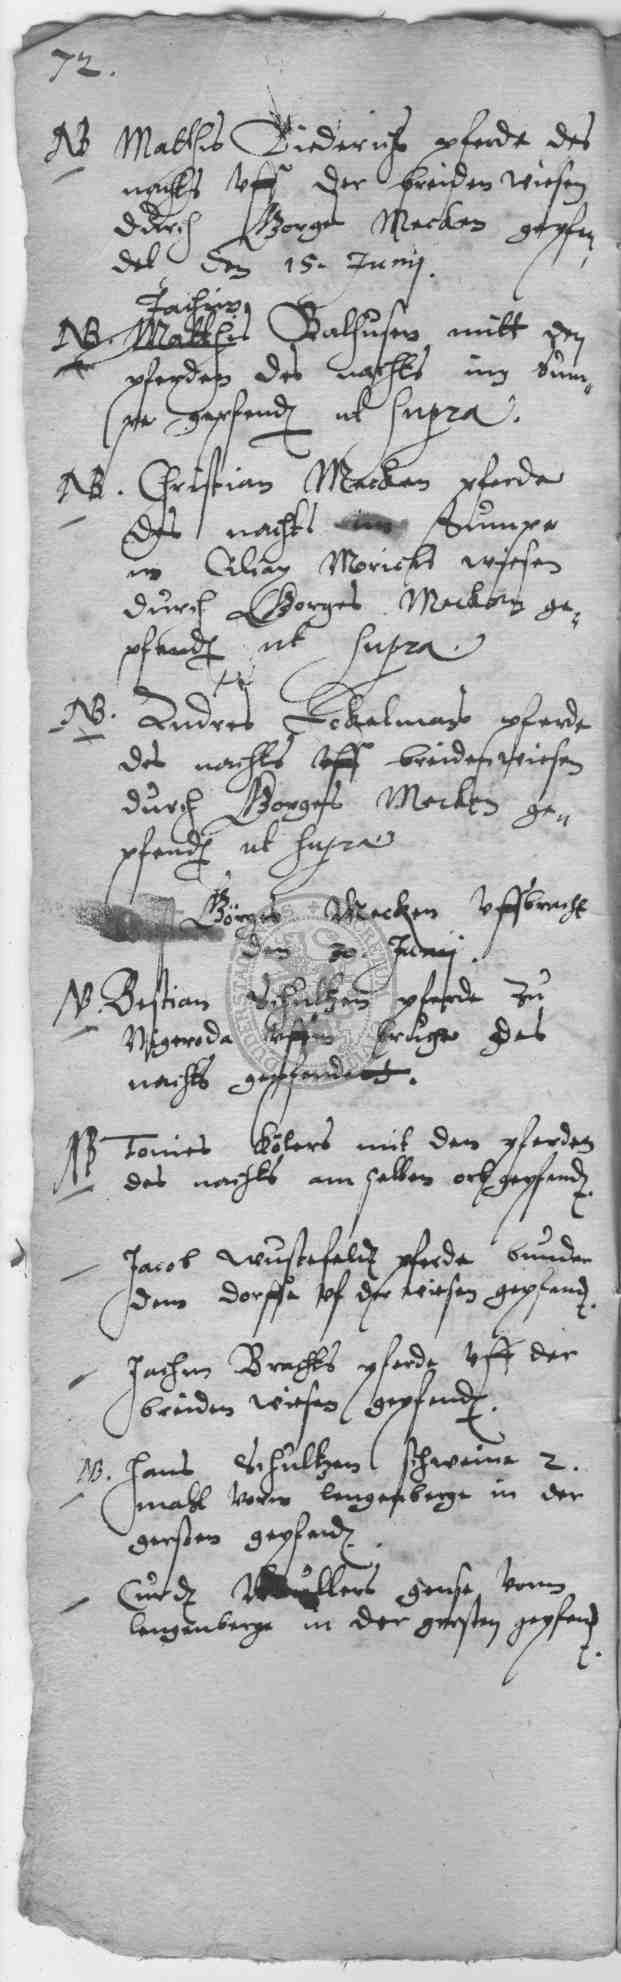 72.
NB Mathis Diederichs pferde des
nachts vff der breiden wiesen
durch Borges Mecken gepfen
det den 15. Junij.
Jachim
NB. Matthis Balhusen mitt den
pferden des nachts im Sum-
pe gepfend ut supra.
NB. Christian Mecken pferde
des nachts im Sumpe
in Cilian Morichs wiesen
durch Borges Mecken ge-
pfend ut supra.
NB. Andres Eckelmans pferde
des nachts vff breiden wiesen
durch Borges Mecken ge-
pfend ut supra
Börges Mecken vffbracht
den 30. Junij.
NB. Bestian Schultzen pferde zu
Wigeroda vffm bruche des
nachts gepfendet.
NB Tonies Kölers mit den pferden
des nachts am selben ort gepfend.
Jacob Wustefeld pferde bunder
dem dorffe vf der wiesen gepfend.
Jachim Brachts pferde vff der
breiden wiesen gepfend.
NB. Hans Schultzen schweine 2.
mahl vorm lengenberge in der
gersten gepfend.
Curd Mullers gense vorm
lengenberge in der gersten gepfend.